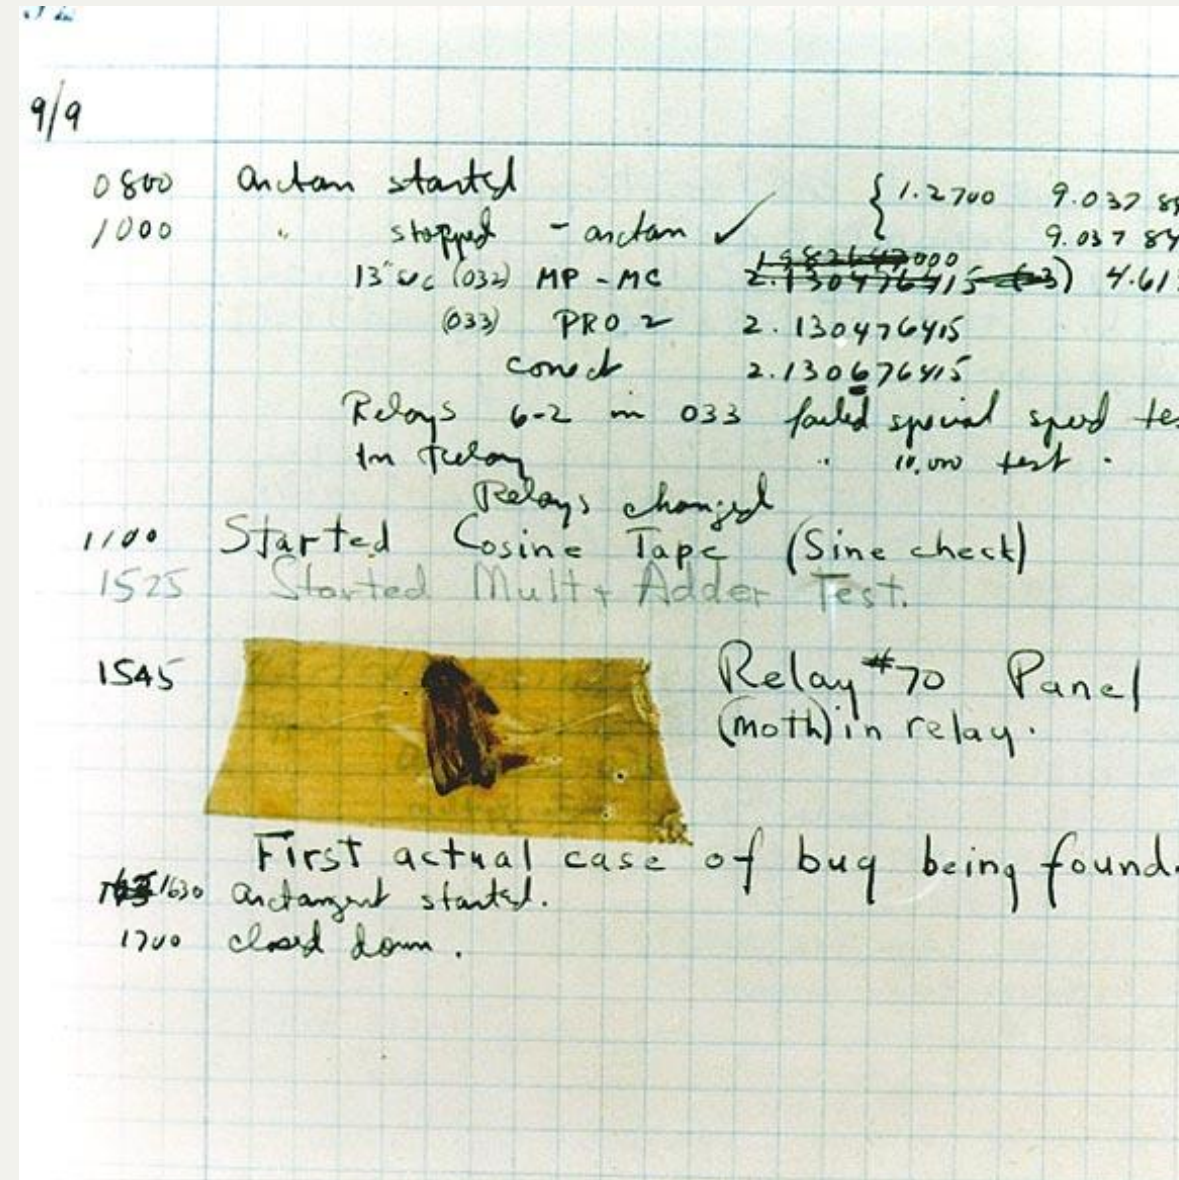 9/9
0800 arctan started { 1.2700 9.037 84
1000 " stopped - arctan ✓ 9.037 84
13"uc (032) MP - MC 2.130476415 (-3) 4.61
(033) PRO 2 2.130476415
conect 2.130676415
Relays 6-2 in 033 failed special speed tes
In Relay " 10,000 test .
Relays changed
1100 Started Cosine Tape (Sine check)
1525 Started Mult + Adder Test.
1545 Relay #70 Panel
(moth) in relay.
First actual case of bug being found.
1630 arctangent started.
1700 closed down .